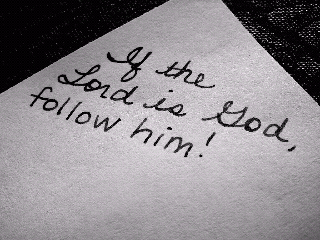 If the
Lord is God,
follow him!